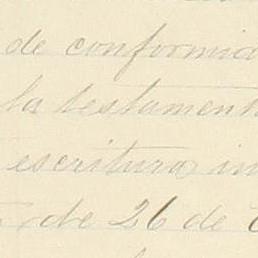 de conformid
la testament
escritura in
de 26 de